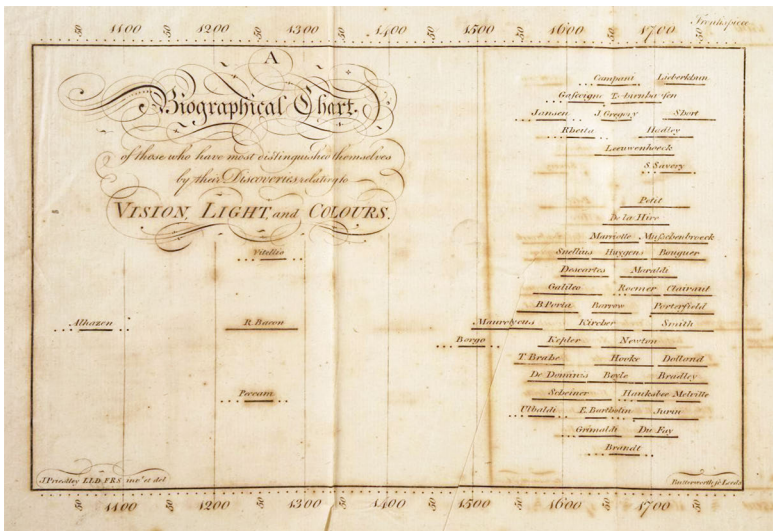 50 1100 50 1200 50 1300 50 1400 50 1500 50 1600 50 1700 50 Frontispiece
A
Biographical Chart.
of those who have most distinguished themselves
by their Discoveries relating to
VISION, LIGHT, and COLOURS.
Campani Lieberkhun
Gascoigne Tschirnhausen
Jansen J. Gregory Short
Rheita Hadley
Leeuwenhoeck
S. Savery
Petit
De la Hire
Marriotte Musschenbroeck
Vitellio Snellius Huygens Bouguer
Descartes Maraldi
Galileo Roemer Clairaut
B. Porta Barrow Porterfield
Alhazen R. Bacon Maurolycus Kircher Smith
Borgo Kepler Newton
T. Brahe Hooke Dolland
De Dominis Boyle Bradley
Peccam Scheiner Hauksbee Melville
Ubaldi E. Bartholin Jurin
Grimaldi Du Fay
Brandt
J. Priestley LL.D. F.R.S. inv.t et del. Butterworth sc. Leeds
50 1100 50 1200 50 1300 50 1400 50 1500 50 1600 50 1700 50